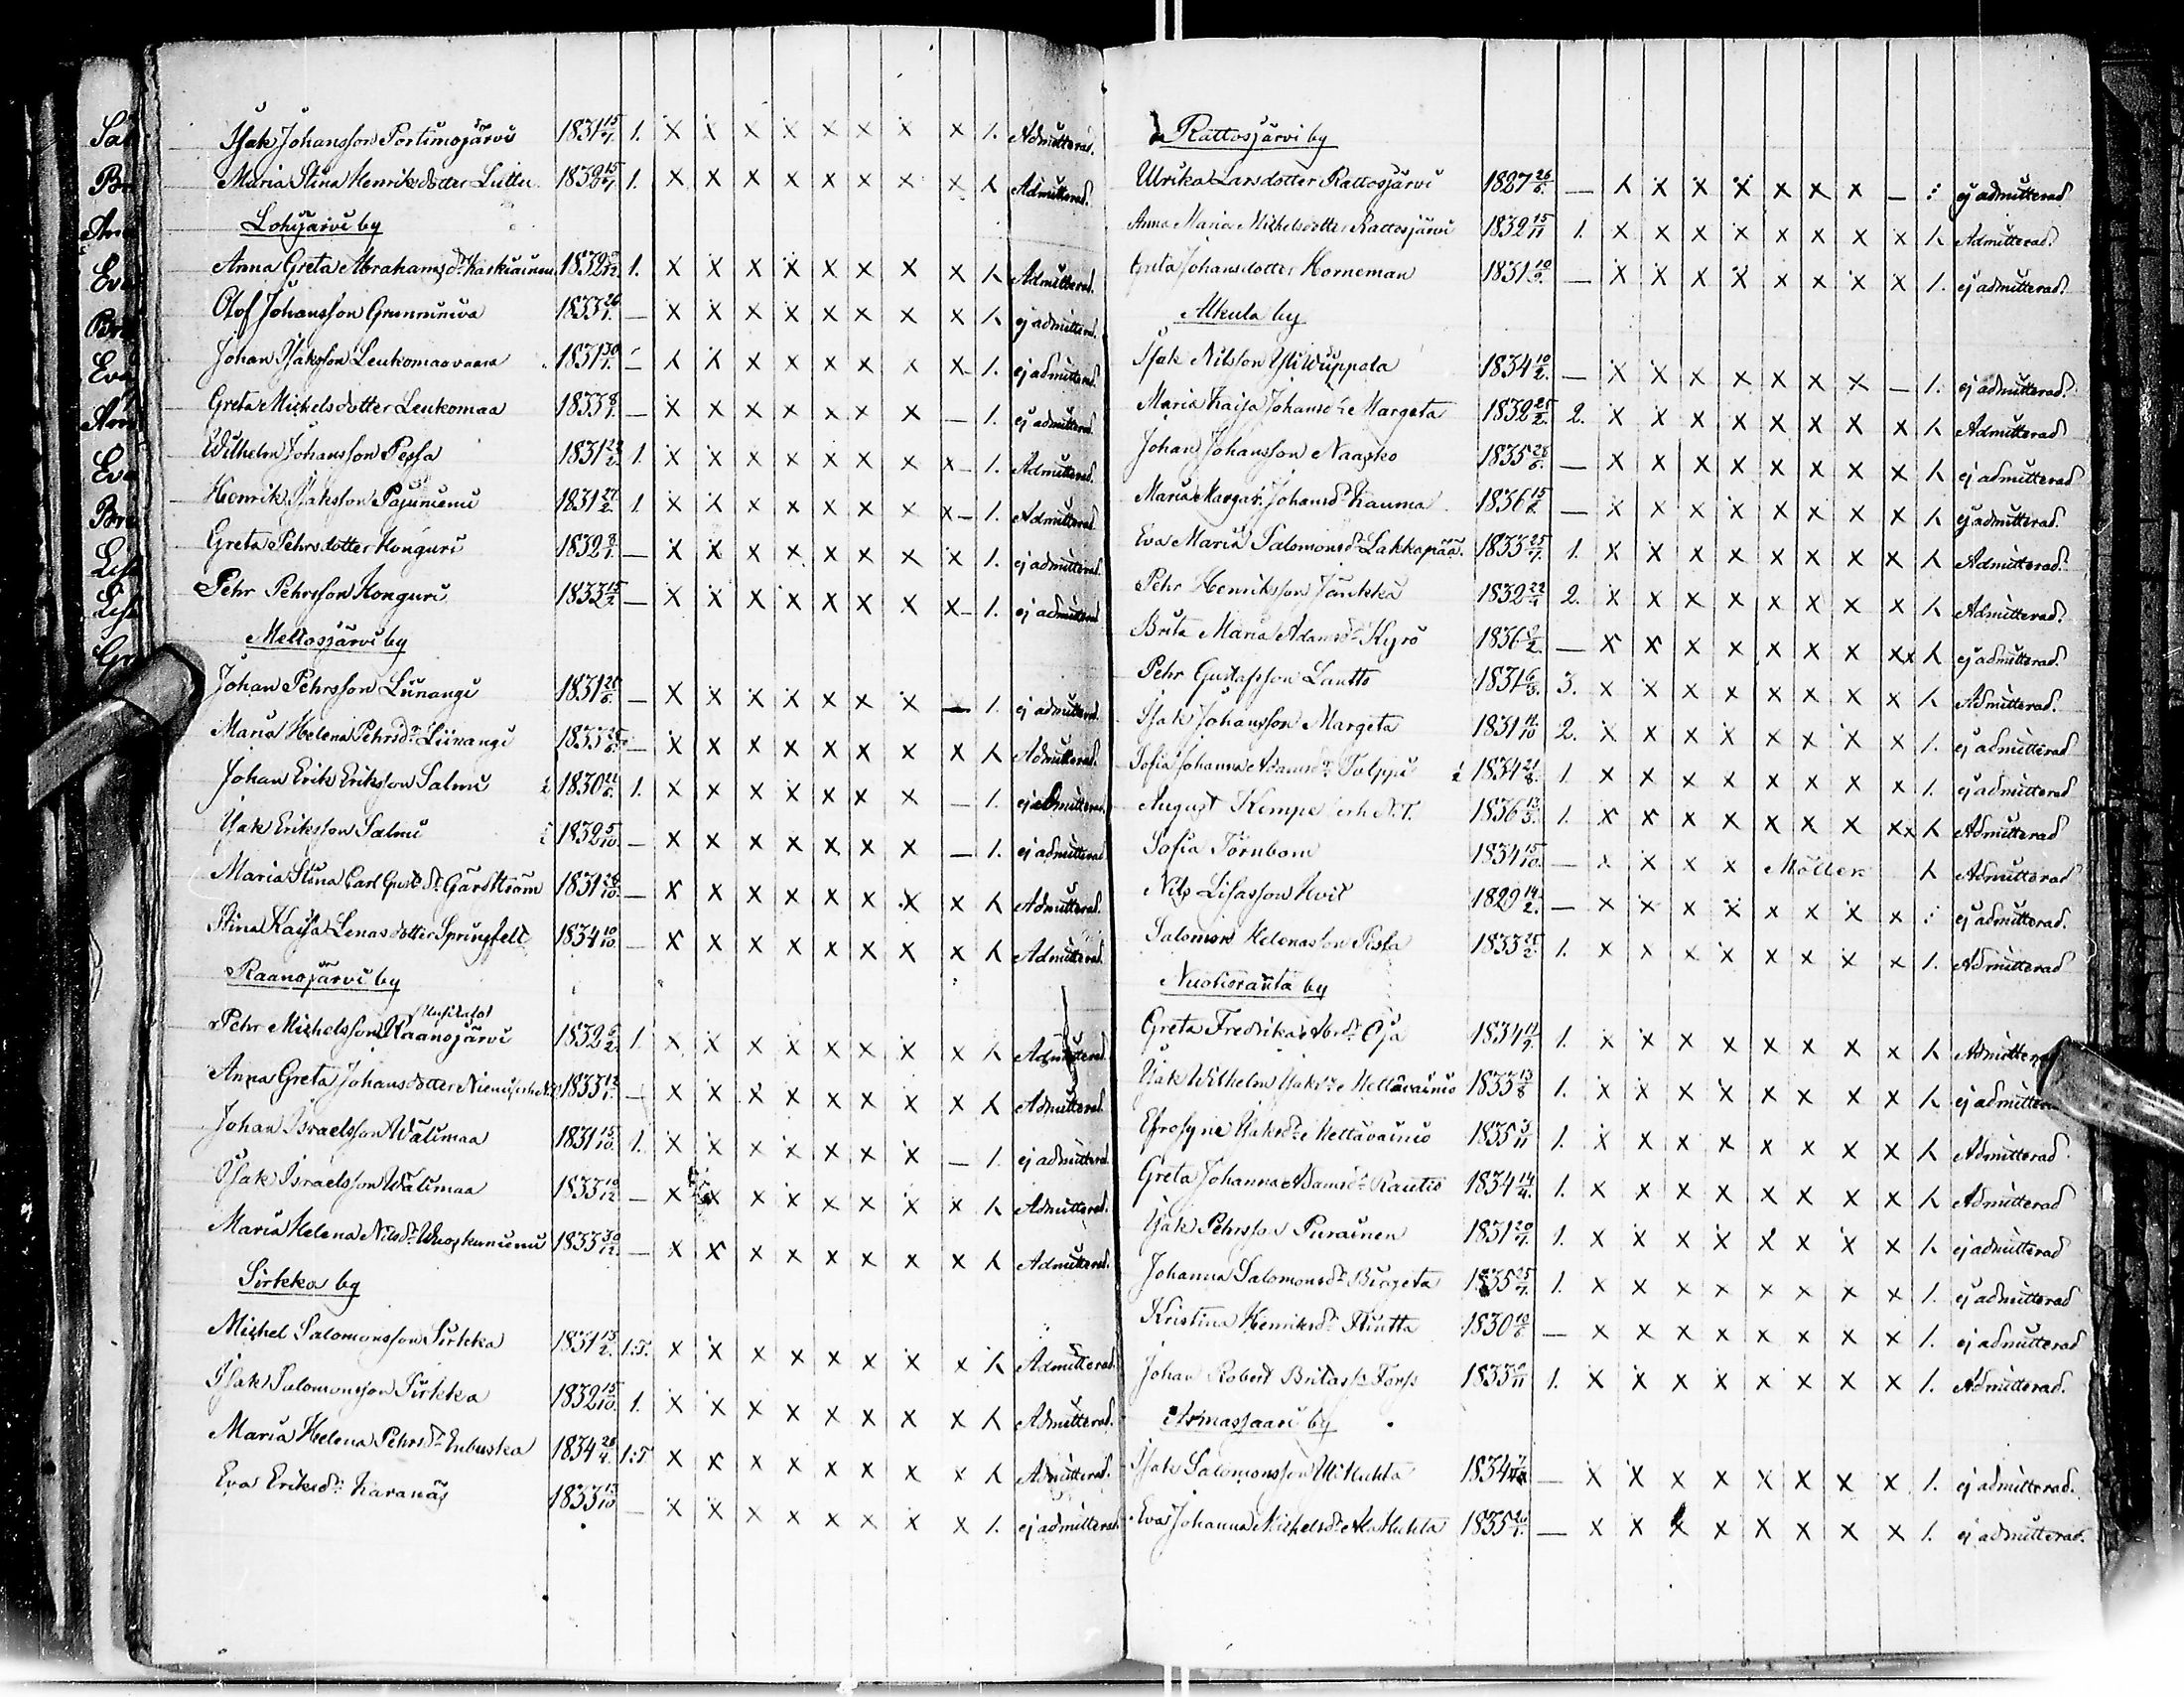 Isak Johansson Portimojärvi 1831 15/7. 1. x x x x x x x x 1. Admitterad.
Maria Stina Henriksdotter Luttu 1832 15/7 1. x x x x x x x x λ Admitterad.
Lohijärvi by
Anna Greta Abrahamsdr Karkiainen 1832 1. x x x x x x x x λ Admitterad.
Olof Johansson Grunruniva 1833 26/1. — x x x x x x x x λ ej admitterad.
Johan Isaksson Leukomaavaara 1831 30/1. — λ λ x x x x x x 1. ej admitterad.
Greta Michelsdotter Leukomaa 1833 8/1. — x x x x x x x — 1. ej admitterad.
Wilhelm Johansson Pessa 1831 1. x x x x x x x x 1. Admitterad.
Henrik Isaksson Pajuniemi 1831 27/2. 1 x λ x x x x x x 1. Admitterad.
Greta Pehrsdotter Konguri 1832 — x x x x x x x x 1. ej admitterad.
Pehr Pehrsson Konguri 1833 15/2 — x x x x x x x x 1. ej admitterad
Meltosjärvi by
Johan Pehrsson Liinangi 1831 — x x x x x x x — 1. ej admitterad.
Maria Helena Pehrsdr Liinangi 1833 — x x x x x x x x λ Admitterad.
Johan Erik Eriksson Salmi 1830 1. x x x x x x x — 1. ej admitterad.
Isak Eriksson Salmi 1832 5/10. — x x x x x x x — 1. ej admitterad
Maria Stina Carl Gust. dr Gårdström 1831 — x x x x x x x x λ Admitterad.
Stina Kaisa Lenasdotter Springfelt 1834 10/10. — x x x x x x x x λ Admitterad.
Raanojärvi by
Pehr Michelsson Raanojärvi 1832 1. x x x x x x x x λ Admitterad
Anna Greta Johansdotter Niemi 1833 — x x x x x x x x λ Admitterad
Johan Israelsson Wälimaa 1831 15/10. 1. x x x x x x x — 1. ej admitterad.
Isak Israelsson Wälimaa 1833 10/12. — x x x x x x x x λ Admitterad.
Maria Helena Nilsdr Wuopkuniemi 1833 30/12. — x x x x x x x x λ Admitterad.
Sirkka by
Michel Salomonsson Sirkka 1831 13/2. 1:T. x x x x x x x x λ Admitterad.
Isak Salomonsson Sirkka 1832 15/10. 1. x x x x x x x x λ Admitterad.
Maria Helena Pehrsdr Enbuska 1834 26/4. 1:T x x x x x x x x λ Admitterad.
Eva Eriksdr Karanäs 1833 13/10 — x x x x x x x x 1. ej admitterad.
Rattosjärvi by
Ulrika Larsdotter Rattosjärvi 1827 26/6. — λ x x x x x x — : ej admitterad
Anna Maria Michelsdotter Rattosjärvi 1832 15/11 1. x x x x x x x x λ Admitterad.
Greta Johansdotter Horneman 1831 10/9. — x x x x x x x x 1. ej admitterad.
Alkula by
Isak Nilsson Yli Wuppola 1834 10/2. — x x x x x x x — 1. ej admitterad.
Maria Kaisa Johansdr Margeta 1832 25/2. 2. x x x x x x x x λ Admitterad
Johan Johansson Naasko 1835 28/6. — x x x x x x x x λ ej admitterad
Maria Margar. Johansdr Kauma 1836 — x x x x x x x x λ ej admitterad.
Eva Maria Salomonsdr Lakkapää 1833 25/7. 1. x x x x x x x x λ Admitterad.
Pehr Henriksson Jänkkä 1832 2. x x x x x x x x λ Admitterad.
Brita Maria Adamsdr Kyrö 1836 — x x x x x x x xx λ ej admitterad.
Pehr Gustafsson Lautto 1831 3. x x x x x x x x λ Admitterad.
Isak Johansson Margeta 1831 2. x x x x x x x x 1. ej admitterad
Sofia Johanna Adamsdr Tulppi 1834 21/8. 1. x x x x x x x x 1. ej admitterad
August Kempe erh N.T. 1836 1. x x x x x x x xx λ Admitterad
Sofia Törnbom 1834 15/10. — x x x x Möller λ Admitterad
Nils Lisasson Hvit 1829 14/2. — x x x x x x x x : ej admitterad.
Salomon Helenasson Pessa 1833 25/2. 1. x x x x x x x x 1. Admitterad
Nuotioranta by
Greta Fredrika Abrdr Oja 1834 1. x x x x x x x x λ Admitterad
Isak Wilhelm Isaks Mellavainio 1833 13/8 1. x x x x x x x x λ ej admitterad
Efrosyne Isaksdr Mellavainio 1835 3/11 1. x x x x x x x x λ Admitterad
Greta Johanna Adamsdr Rautio 1834 14/4. 1. x x x x x x x x λ Admitterad
Isak Pehrsson Purainen 1831 1. x x x x x x x x λ ej admitterad
Johanna Salomonsdr Birgeta 1835 25/7. 1. x x x x x x x x 1. ej admitterad
Kristina Henriksdr Pluutta 1830 — x x x x x x x x 1. ej admitterad
Johan Robert Britass. Forss 1833 1. x x x x x x x x 1. Admitterad.
Armassaari by
Isak Salomonsson Ylikuhta 1834 — x x x x x x x x 1. ej admitterad.
Eva Johanna Michelsdr Alakuhta 1835 — x x x x x x x x 1. ej admitterad.